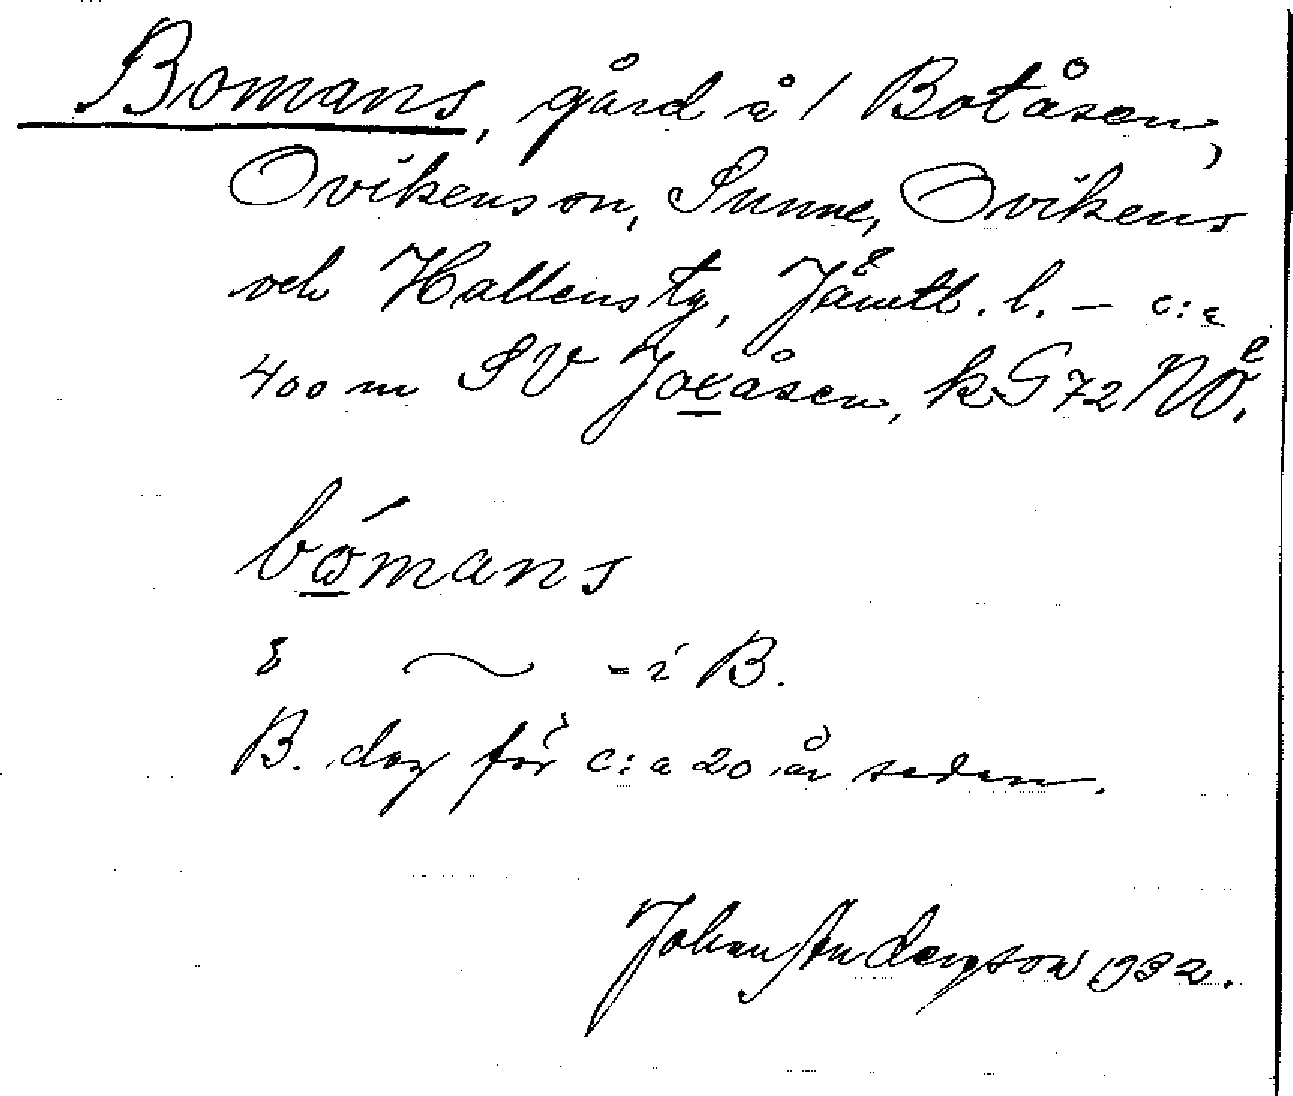 Bomans, gård å / Botåsen,
Ovikens sn, Sunne, Ovikens
och Hallens tg, Jämtl. l. – c:a
400 m SV Joxåsen, k G 72 NV.
bómans
– i B.
B. dog för c:a 20 år sedan.
Johan Andersson 1932.